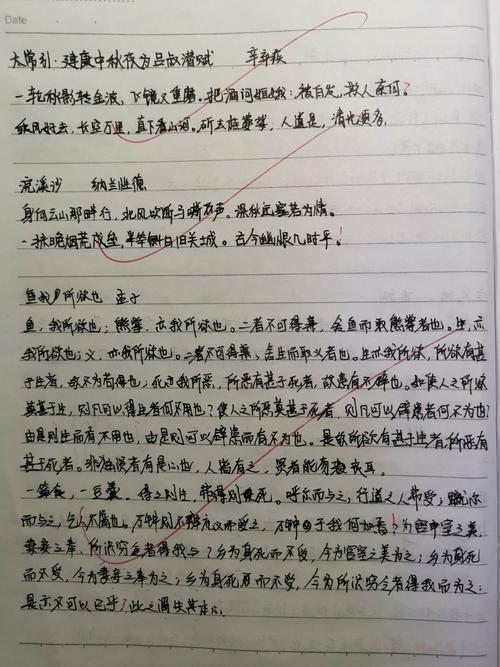 Date
太常引·建康中秋夜为吕叔潜赋 辛弃疾
一轮秋影转金波,飞镜又重磨。把酒问姮娥:被白发,欺人奈何?
乘风好去,长空万里,直下看山河。斫去桂婆娑,人道是,清光更多。
浣溪沙 纳兰性德
身向云山那畔行,北风吹断马嘶声。深秋远塞若为情。
一抹晚烟荒戍垒,半竿斜日旧关城。古今幽恨几时平!
鱼我所欲也 孟子
鱼,我所欲也;熊掌,亦我所欲也。二者不可得兼,舍鱼而取熊掌者也。生,亦
我所欲也;义,亦我所欲也。二者不可得兼,舍生而取义者也。生亦我所欲,所欲有甚
于生者,故不为苟得也;死亦我所恶,所恶有甚于死者,故患有不辟也。如使人之所欲
莫甚于生,则凡可以得生者何不用也?使人之所恶莫甚于死者,则凡可以辟患者何不为也?
由是则生而有不用也,由是则可以辟患而有不为也。是故所欲有甚于生者,所恶有
甚于死者。非独贤者有是心也,人皆有之,贤者能勿丧耳。
一箪食,一豆羹,得之则生,弗得则死。呼尔而与之,行道之人弗受;蹴尔
而与之,乞人不屑也。万钟则不辩礼义而受之,万钟于我何加焉!为宫室之美,
妻妾之奉,所识穷乏者得我与?乡为身死而不受,今为宫室之美为之;乡为身死
而不受,今为妻妾之奉为之;乡为身死而不受,今为所识穷乏者得我而为之:
是亦不可以已乎?此之谓失其本心。